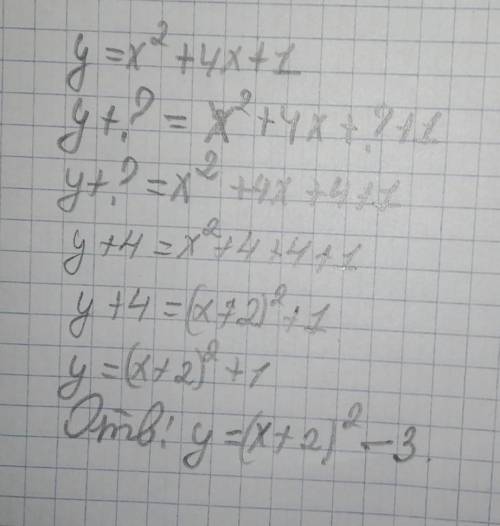 y = x² + 4x + 1
y + ? = x² + 4x + ? + 1
y + ? = x² + 4x + 4 + 1
y + 4 = x² + 4 + 4 + 1
y + 4 = (x + 2)² + 1
y = (x + 2)² + 1
Отв: y = (x + 2)² - 3.